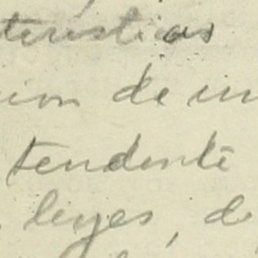 terísticas
ion de un
tendente
leyes, de